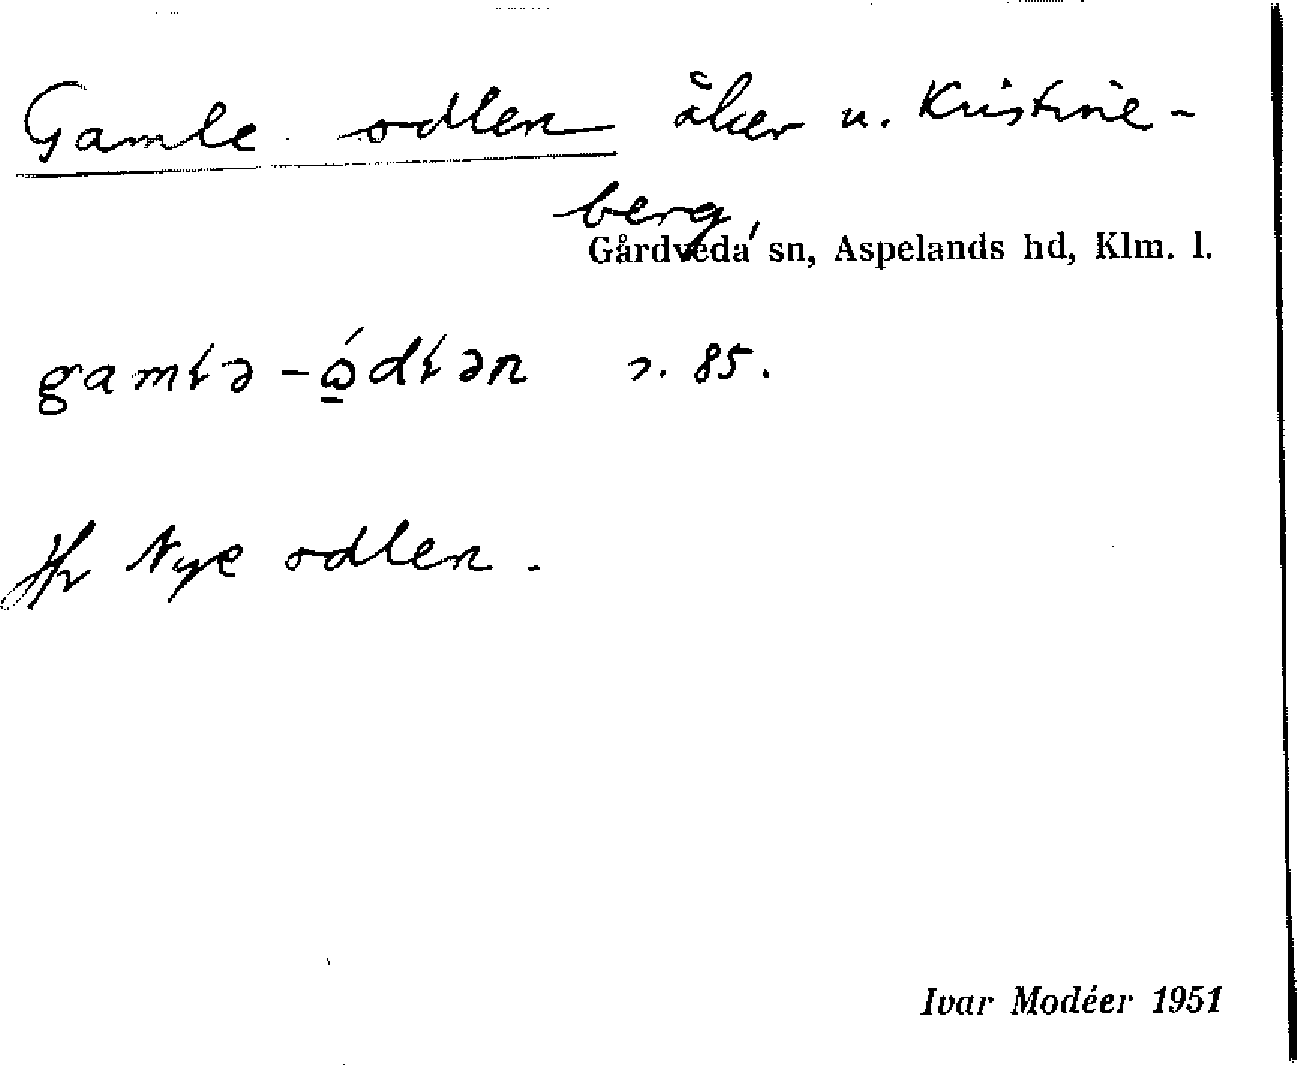 Gamle odlen åker u. Kristine-
berg,
Gårdveda sn, Aspelands hd, Klm. l.
gamłə-ǫ́dłən s. 85.
Jfr Nye odlen.
Ivar Modéer 1951